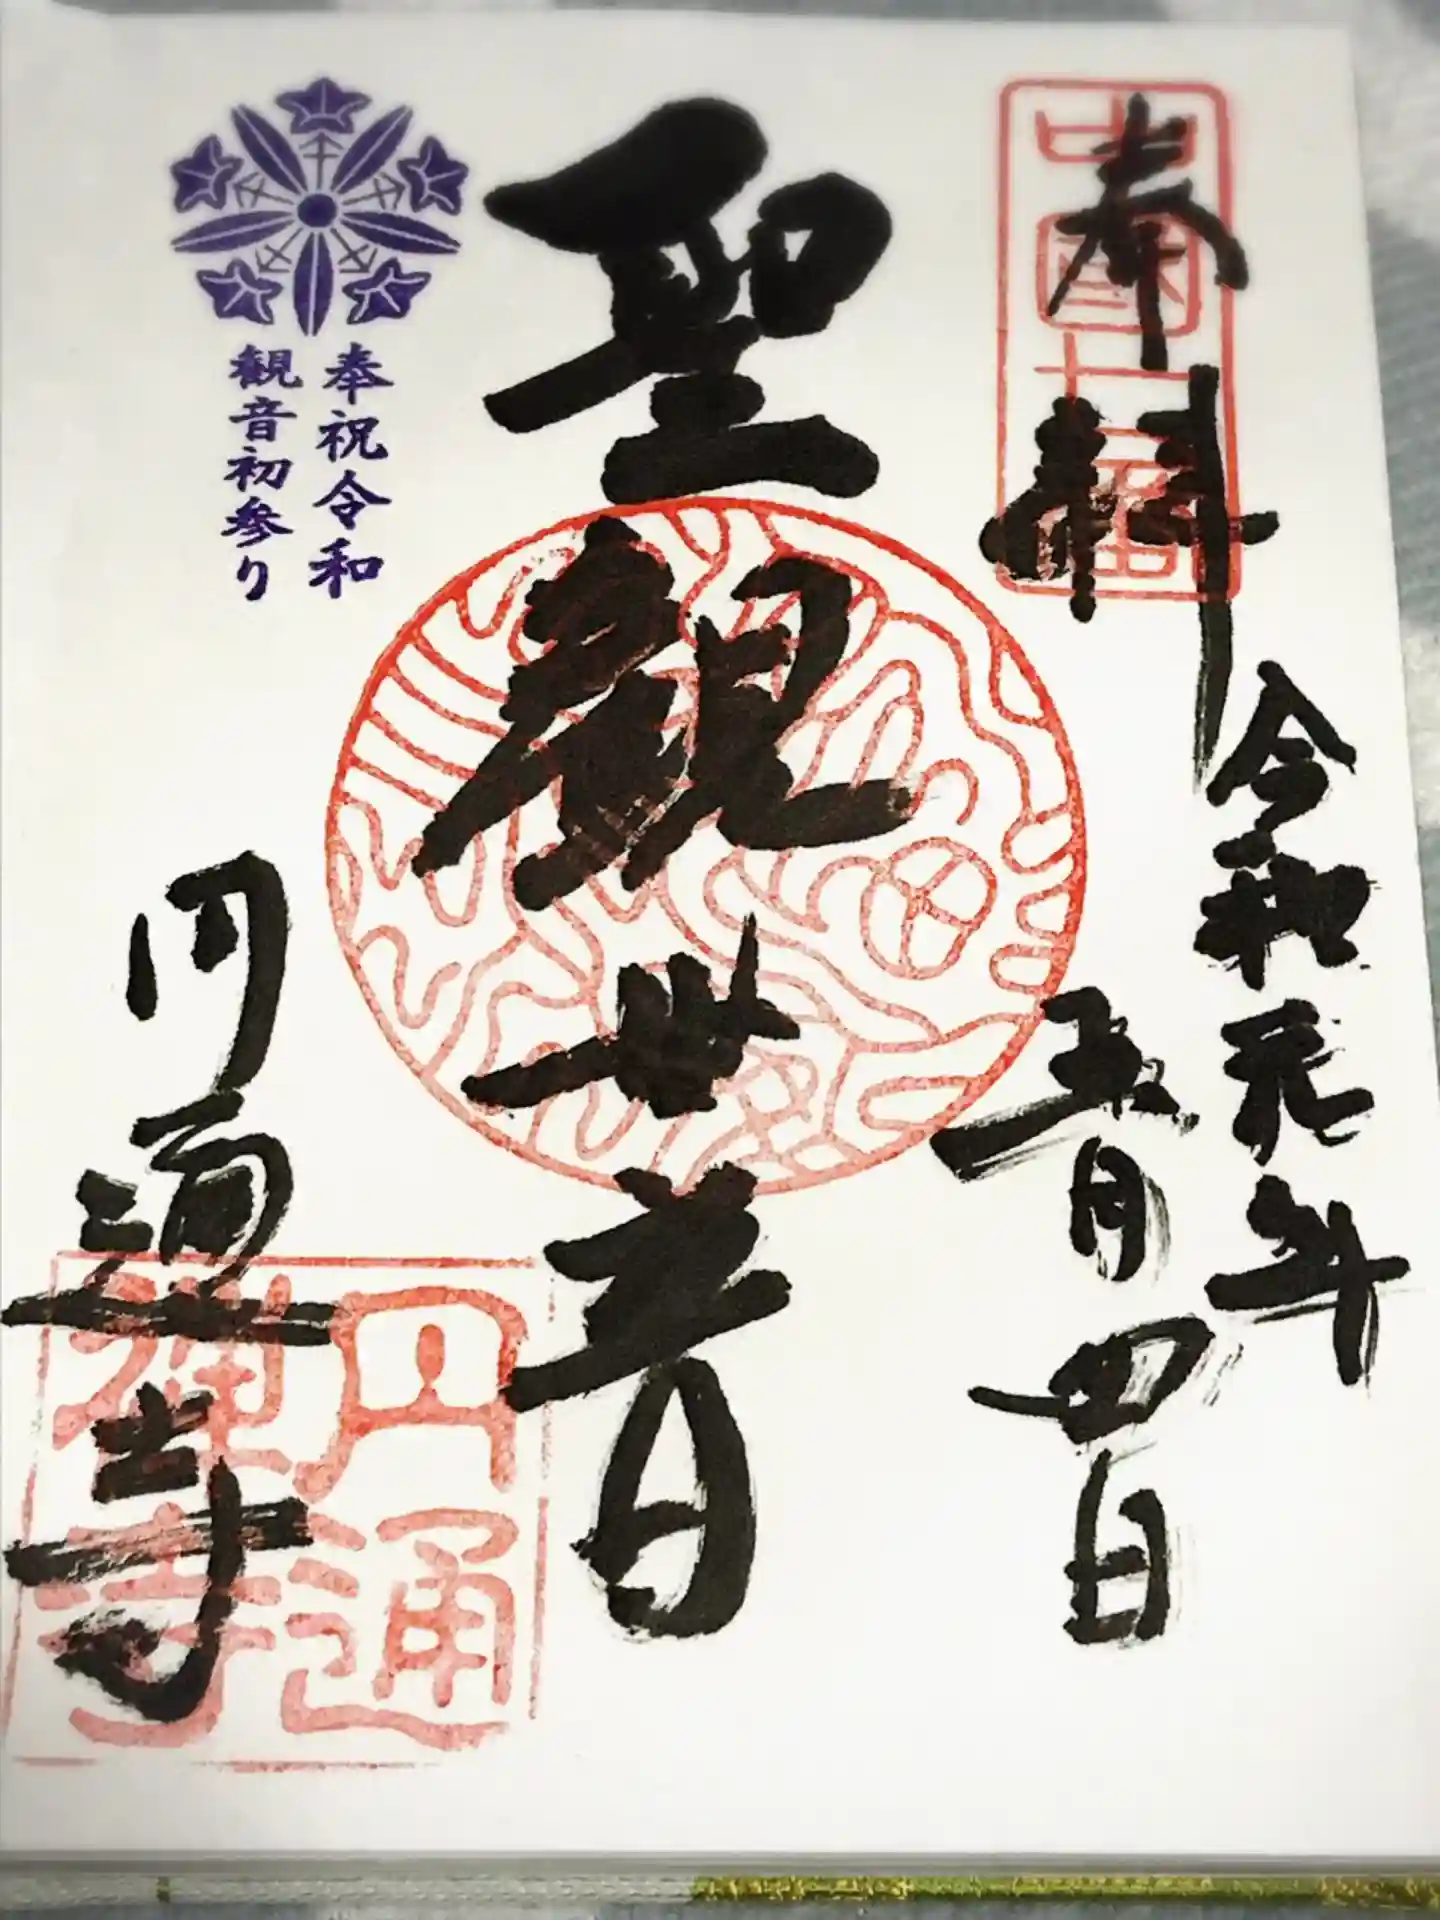 奉拝
中国七番
令和元年
五月四日
聖観世音
奉祝令和
観音初参り
円通寺
円通
禅寺